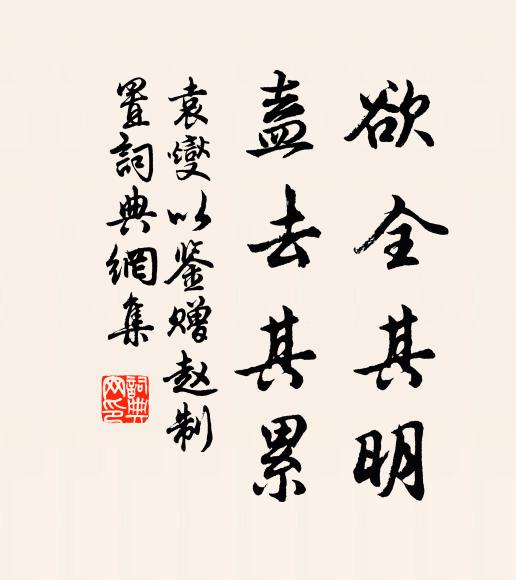 欲全其明
盍去其累
袁燮以鉴赠赵制
置詞典網集
詞典网印